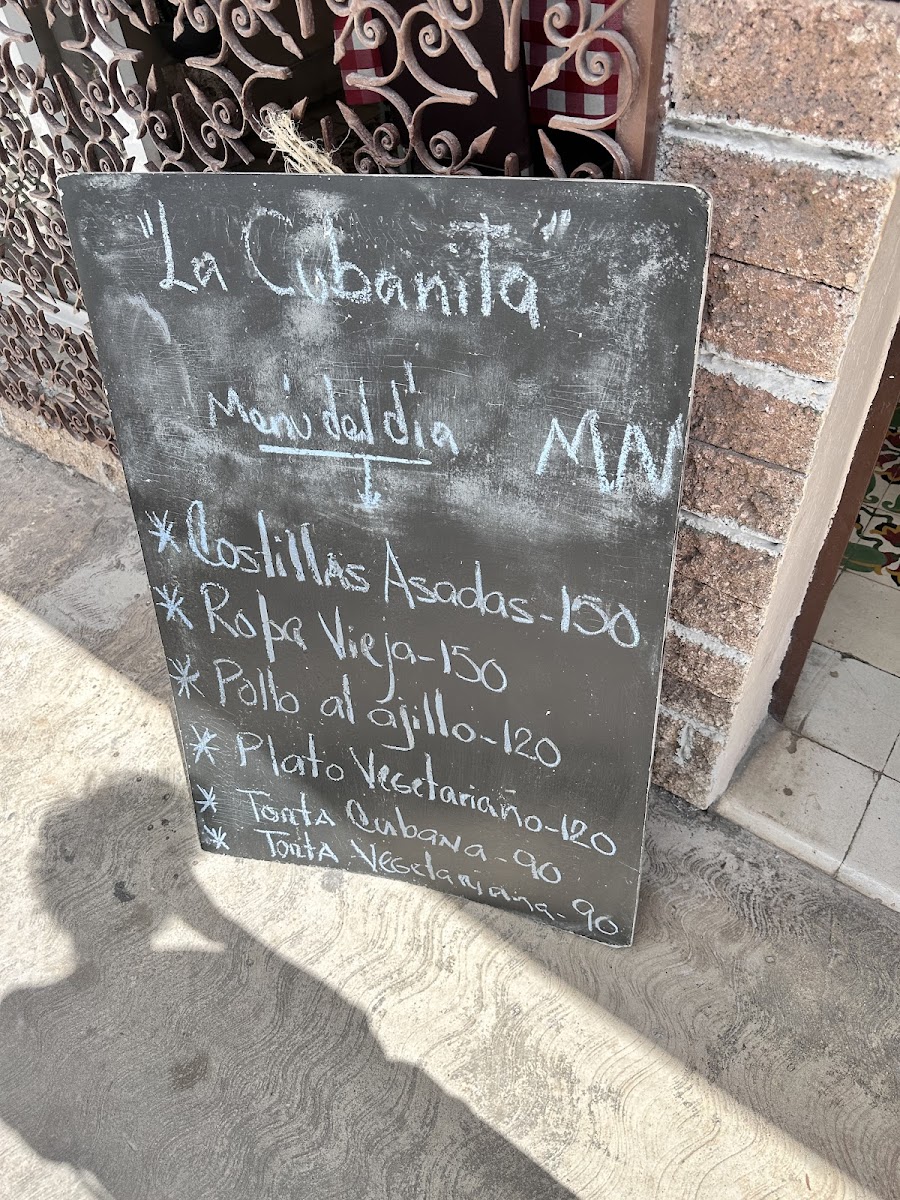 "La Cubanita"
Menú del día
MAN
* Costillas Asadas-150
* Ropa Vieja-150
* Pollo al ajillo-120
* Plato Vegetariano-120
* Torta Cubana-90
* Torta Vegetariana-90